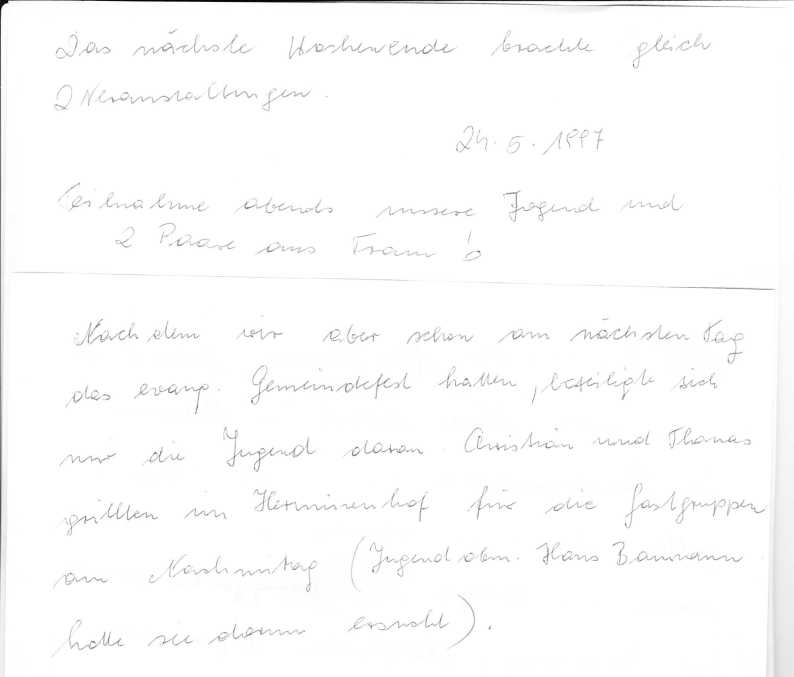 Das nächste Wochenende brachte gleich
2 Veranstaltungen.
24.5.1997
Teilnahme abends unsere Jugend und
2 Paare aus
Nachdem wir aber schon am nächsten Tag
das evang. Gemeindefest hatten, beteiligte sich
nur die Jugend daran. Christian und Thomas
grillten im Herminenhof für die Gastgruppen
am Nachmittag (Jugendobm. Hans Baumann
hatte sie darum ersucht).